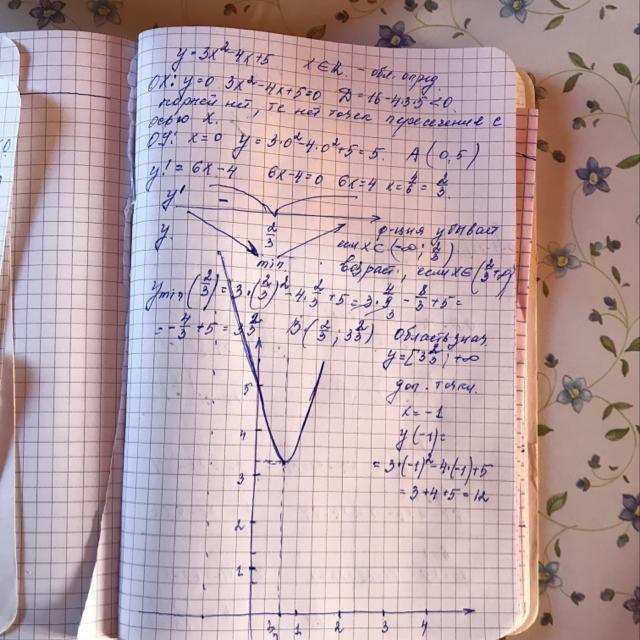 y = 3x² - 4x + 5 x ∈ R. - обл. опред.
OX: y = 0 3x² - 4x + 5 = 0 D = 16 - 4·3·5 < 0.
корней нет, т.е нет точек пересечения с
осью x.
OY: x = 0 y = 3·0² - 4·0² + 5 = 5. A (0, 5)
y' = 6x - 4 6x - 4 = 0 6x = 4 x = 4/6 = 2/3.
y' -
y. 2/3
min.
ф-ция убывает
если x ∈ (-∞; 2/3)
возраст., если x ∈ (2/3; +∞)
y min (2/3) = 3·(2/3)² - 4·2/3 + 5 = 3·4/9 - 8/3 + 5 =
= -4/3 + 5 = 3 2/3 B (2/3; 3 2/3) Область знач.
y = [3 2/3; +∞
доп. точки.
x = -1
y(-1) =
= 3·(-1)² - 4·(-1) + 5
= 3 + 4 + 5 = 12
5
4
3
2
1
2/3 1 2 3 4